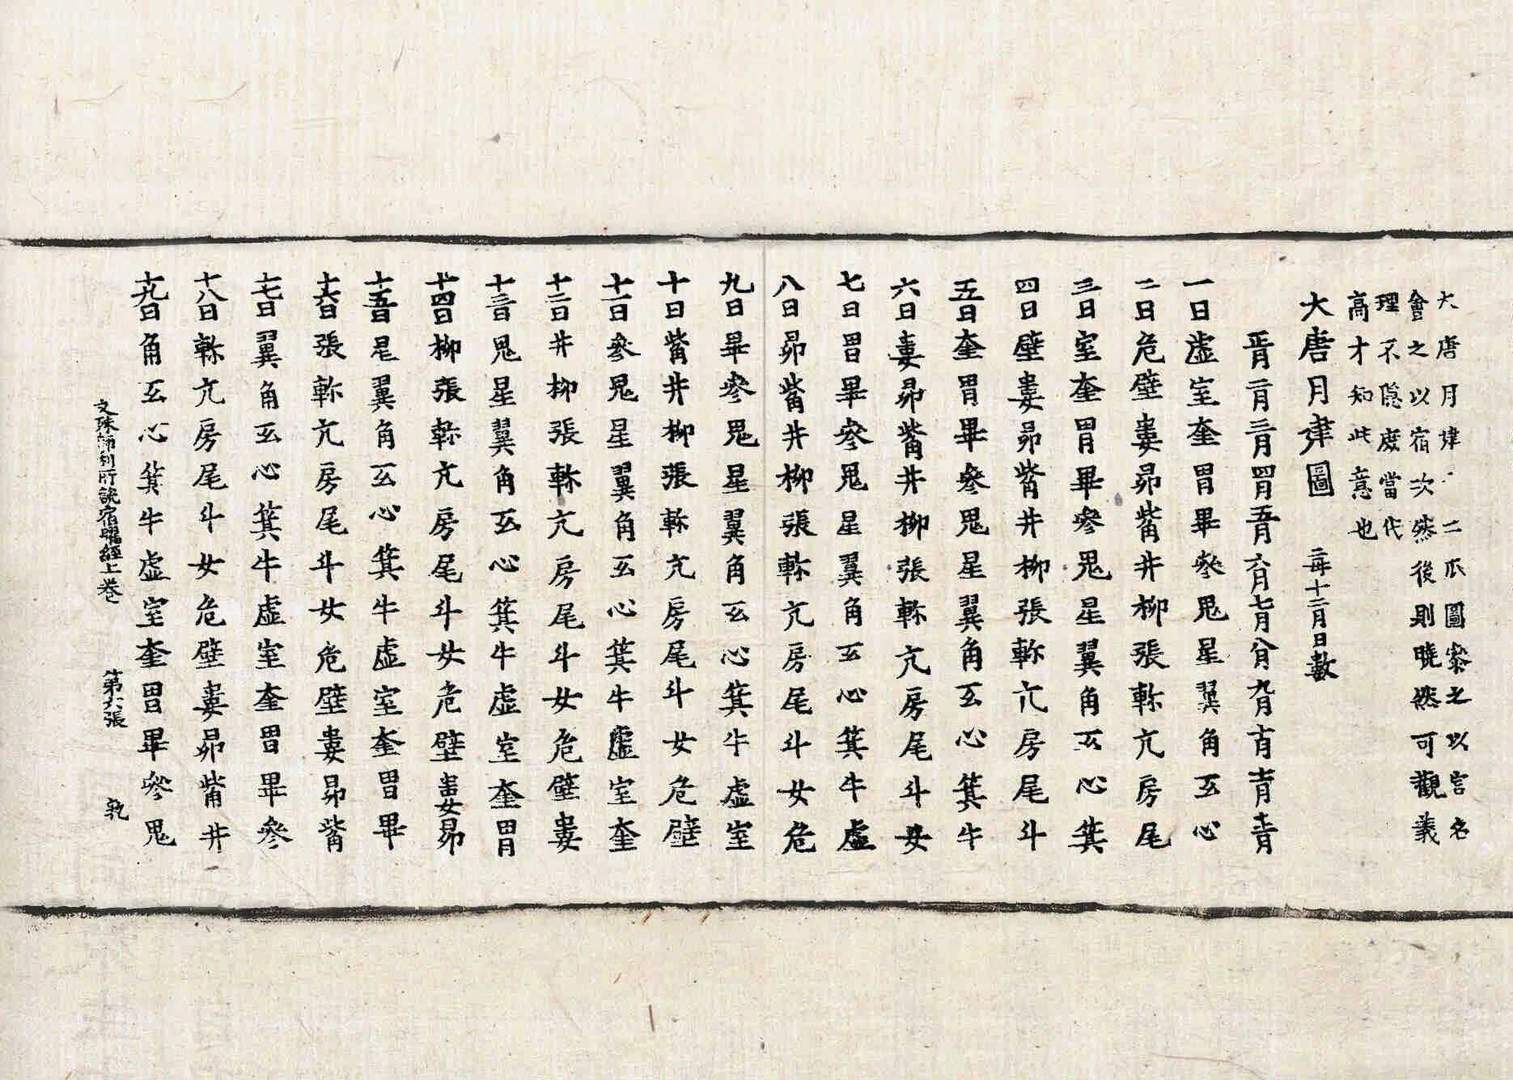 大唐月建二爪圖案之以宮名
會之以宿次然後則曉然可觀義
理不隱度當代
高才知此意也
大唐月建圖 每十二月日數
正月二月三月四月五月六月七月八月九月十月十一月十二月
一日虛室奎胃畢參鬼星翼角互心
二日危壁婁昴觜井柳張軫亢房尾
三日室奎胃畢參鬼星翼角互心箕
四日壁婁昴觜井柳張軫亢房尾斗
五日奎胃畢參鬼星翼角互心箕牛
六日婁昴觜井柳張軫亢房尾斗女
七日胃畢參鬼星翼角互心箕牛虛
八日昴觜井柳張軫亢房尾斗女危
九日畢參鬼星翼角互心箕牛虛室
十日觜井柳張軫亢房尾斗女危壁
十一日參鬼星翼角互心箕牛虛室奎
十二日井柳張軫亢房尾斗女危壁婁
十三日鬼星翼角互心箕牛虛室奎胃
十四日柳張軫亢房尾斗女危壁婁昴
十五日星翼角互心箕牛虛室奎胃畢
十六日張軫亢房尾斗女危壁婁昴觜
十七日翼角互心箕牛虛室奎胃畢參
十八日軫亢房尾斗女危壁婁昴觜井
十九日角互心箕牛虛室奎胃畢參鬼
文殊師利所說宿曜經上卷 第六張 乾